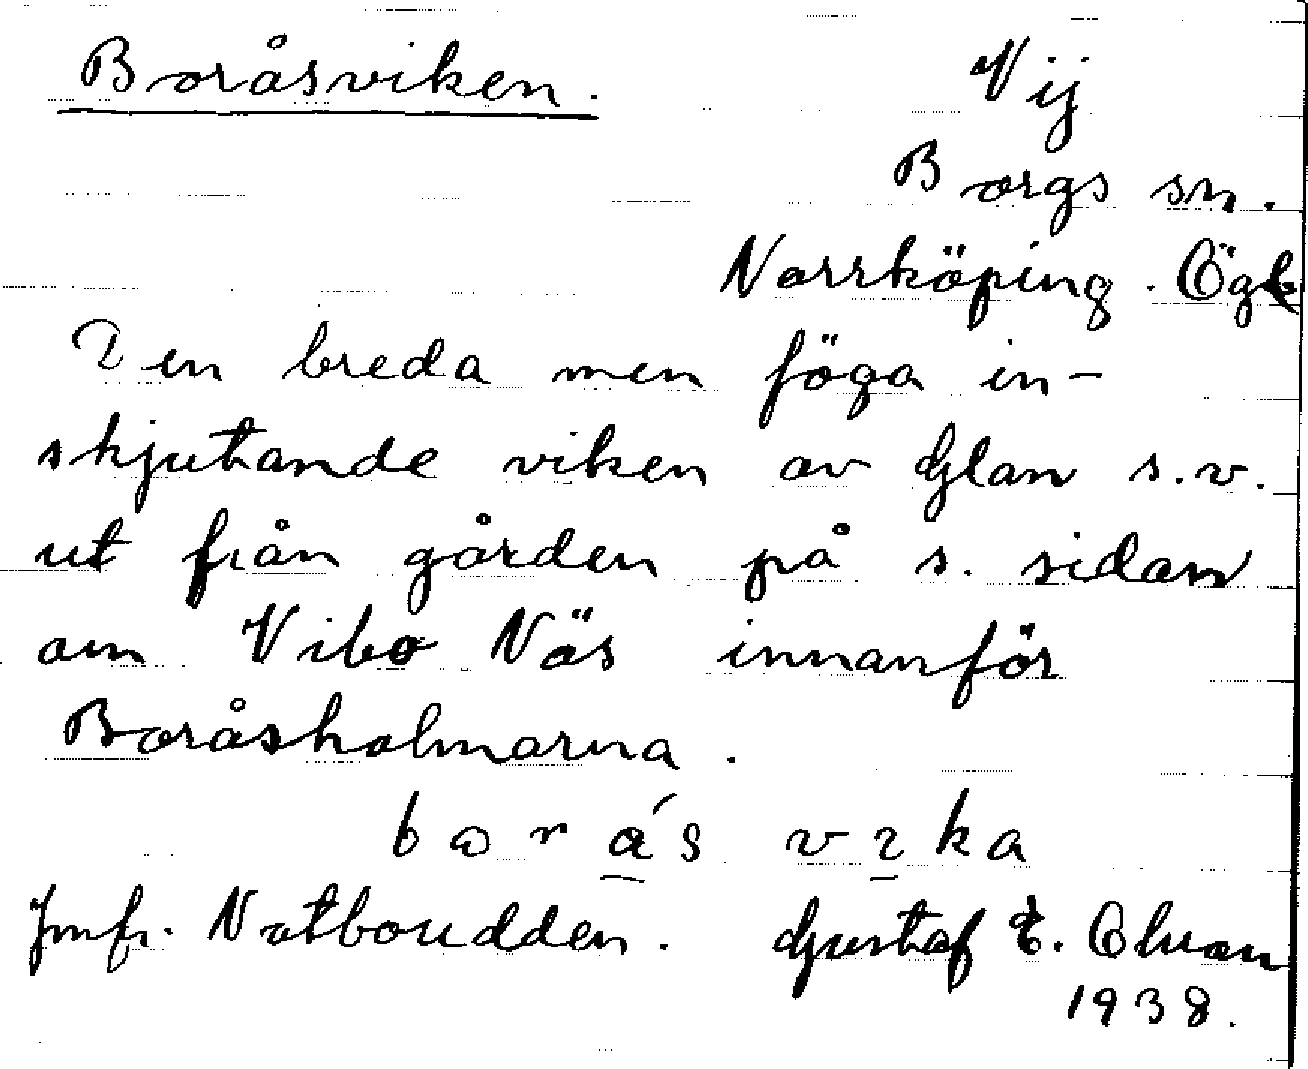 Boråsviken.
Vij
Borgs sn.
Norrköping. Ögl
Den breda men föga in-
skjutande viken av Glan s.v.
ut från gården på s. sidan
om Vibo Näs innanför
Boråsholmarna.
vika
Jmfr. Notboudden. Gustaf E.
1938.